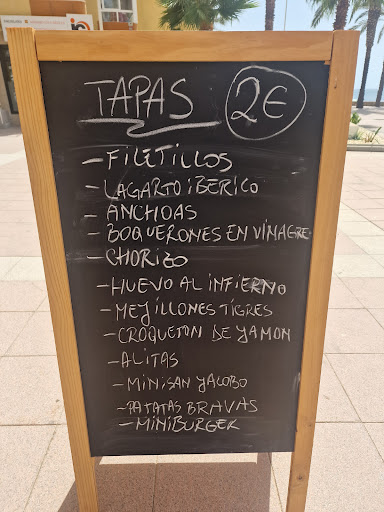 TAPAS 2€
- FILETILLOS
- LAGARTO iBERICO
- ANCHOAS
- BOQUERONES EN VINAGRE
- CHORIZO
- HUEVO AL INFIERNO
- MEJILLONES TIGRES
- CROQUETON DE YAMON
- ALITAS
- MINISAN YACOBO
- PATATAS BRAVAS
- MINIBURGER